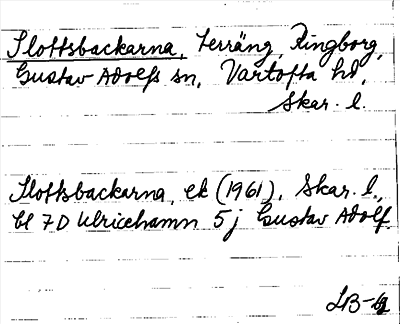 Slottsbackarna, terräng, Ringborg,
Gustav Adolfs sn, Vartofta hd,
Skar. l.
Slottsbackarna, ek (1961), Skar. l.,
bl 7D Ulricehamn 5j Gustav Adolf.